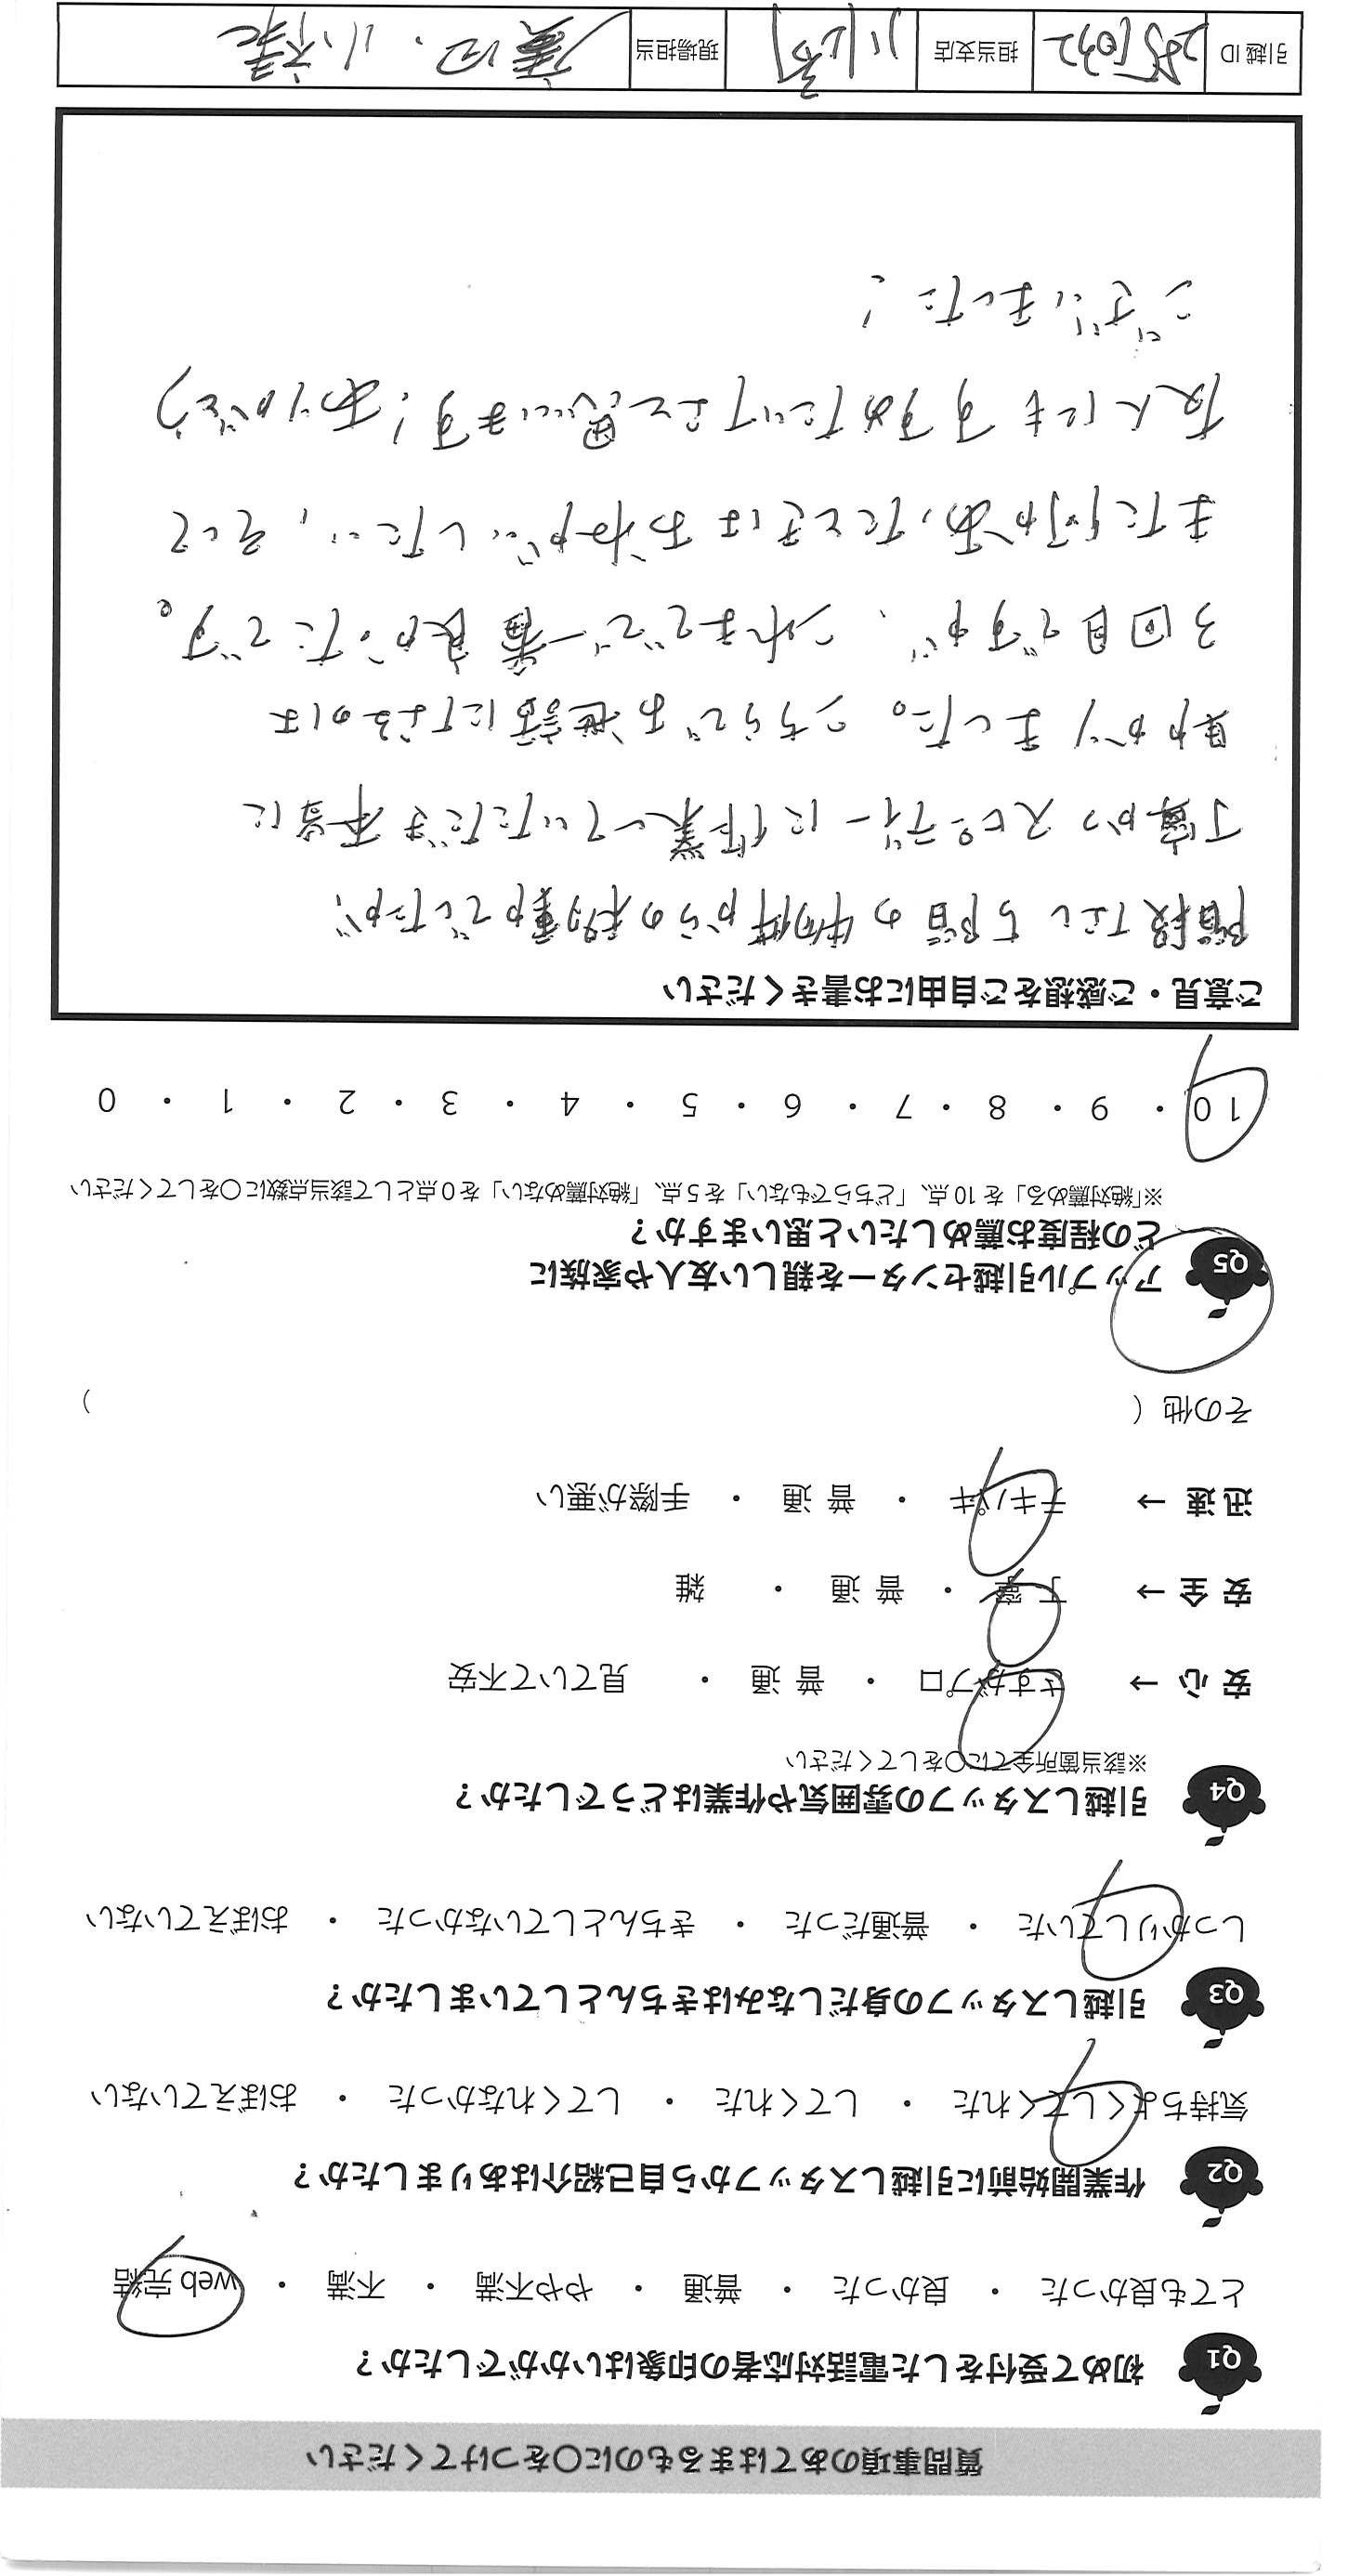 質問事項のあてはまるものに〇をつけてください
Q1 初めて受付をした電話対応者の印象はいかがでしたか？
とても良かった ・ 良かった ・ 普通 ・ やや不満 ・ 不満 ・ web 完結
Q2 作業開始前に引越しスタッフから自己紹介はありましたか？
気持ちよくしてくれた ・ してくれた ・ してくれなかった ・ おぼえていない
Q3 引越しスタッフの身だしなみはきちんとしていましたか？
しっかりしていた ・ 普通だった ・ きちんとしていなかった ・ おぼえていない
Q4 引越しスタッフの雰囲気や作業はどうでしたか？
※該当箇所全てに〇をしてください
安心 → さすがプロ ・ 普通 ・ 見ていて不安
安全 → 丁寧 ・ 普通 ・ 雑
迅速 → テキパキ ・ 普通 ・ 手際が悪い
その他（ ）
Q5 アップル引越センターを親しい友人や家族に
どの程度お薦めしたいと思いますか？
※「絶対薦める」を 10 点、「どちらでもない」を 5 点、「絶対薦めない」を 0 点として該当点数に〇をしてください
10 ・ 9 ・ 8 ・ 7 ・ 6 ・ 5 ・ 4 ・ 3 ・ 2 ・ 1 ・ 0
ご意見・ご感想をご自由にお書きください
階段なし5階の物件からの移動でしたが、
丁寧かつスピーディーに作業していただき本当に
助かりました。こちらでお世話になるのは
3回目ですが、これまでで一番良かったです。
また何かあったときはおねがいしたい、そして
友人にもすすめたいなと思います！ありがとう
ございました！
引越 ID 担当支店 川崎 現場担当